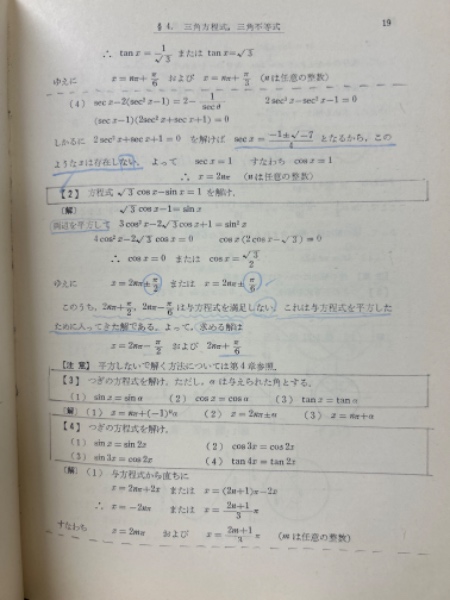 §4. 三角方程式，三角不等式 19
∴ tan x = 1/√3 または tan x = √3
ゆえに x = nπ + π/6 および x = nπ + π/3 (n は任意の整数)
(4) sec x − 2(sec² x − 1) = 2 − 1/sec x 2sec³ x − sec² x − 1 = 0
(sec x − 1)(2sec² x + sec x + 1) = 0
しかるに 2sec² x + sec x + 1 = 0 を解けば sec x = (−1 ± √−7)/4 となるから，この
ような x は存在しない． よって sec x = 1 すなわち cos x = 1
∴ x = 2nπ (n は任意の整数)
【2】 方程式 √3 cos x − sin x = 1 を解け．
〔解〕 √3 cos x − 1 = sin x
両辺を平方して 3cos² x − 2√3 cos x + 1 = sin² x
4cos² x − 2√3 cos x = 0 cos x (2cos x − √3) = 0
∴ cos x = 0 または cos x = √3/2
ゆえに x = 2nπ ± π/2 または x = 2nπ ± π/6
このうち，2nπ + π/2, 2nπ − π/6 は与方程式を満足しない． これは与方程式を平方した
ために入ってきた解である．よって，求める解は
x = 2nπ − π/2 および 2nπ + π/6
【注意】 平方しないで解く方法については第4章参照．
【3】 つぎの方程式を解け．ただし，α は与えられた角とする．
(1) sin x = sin α (2) cos x = cos α (3) tan x = tan α
〔解〕 (1) x = nπ + (−1)ⁿα (2) x = 2nπ ± α (3) x = nπ + α
【4】 つぎの方程式を解け．
(1) sin x = sin 2x (2) cos 3x = cos 2x
(3) sin 3x = cos 2x (4) tan 4x = tan 2x
〔解〕 (1) 与方程式から直ちに
x = 2nπ + 2x または x = (2n+1)π − 2x
∴ x = −2nπ または x = (2n+1)/3 π
すなわち x = 2mπ および x = (2m+1)/3 π (m は任意の整数)